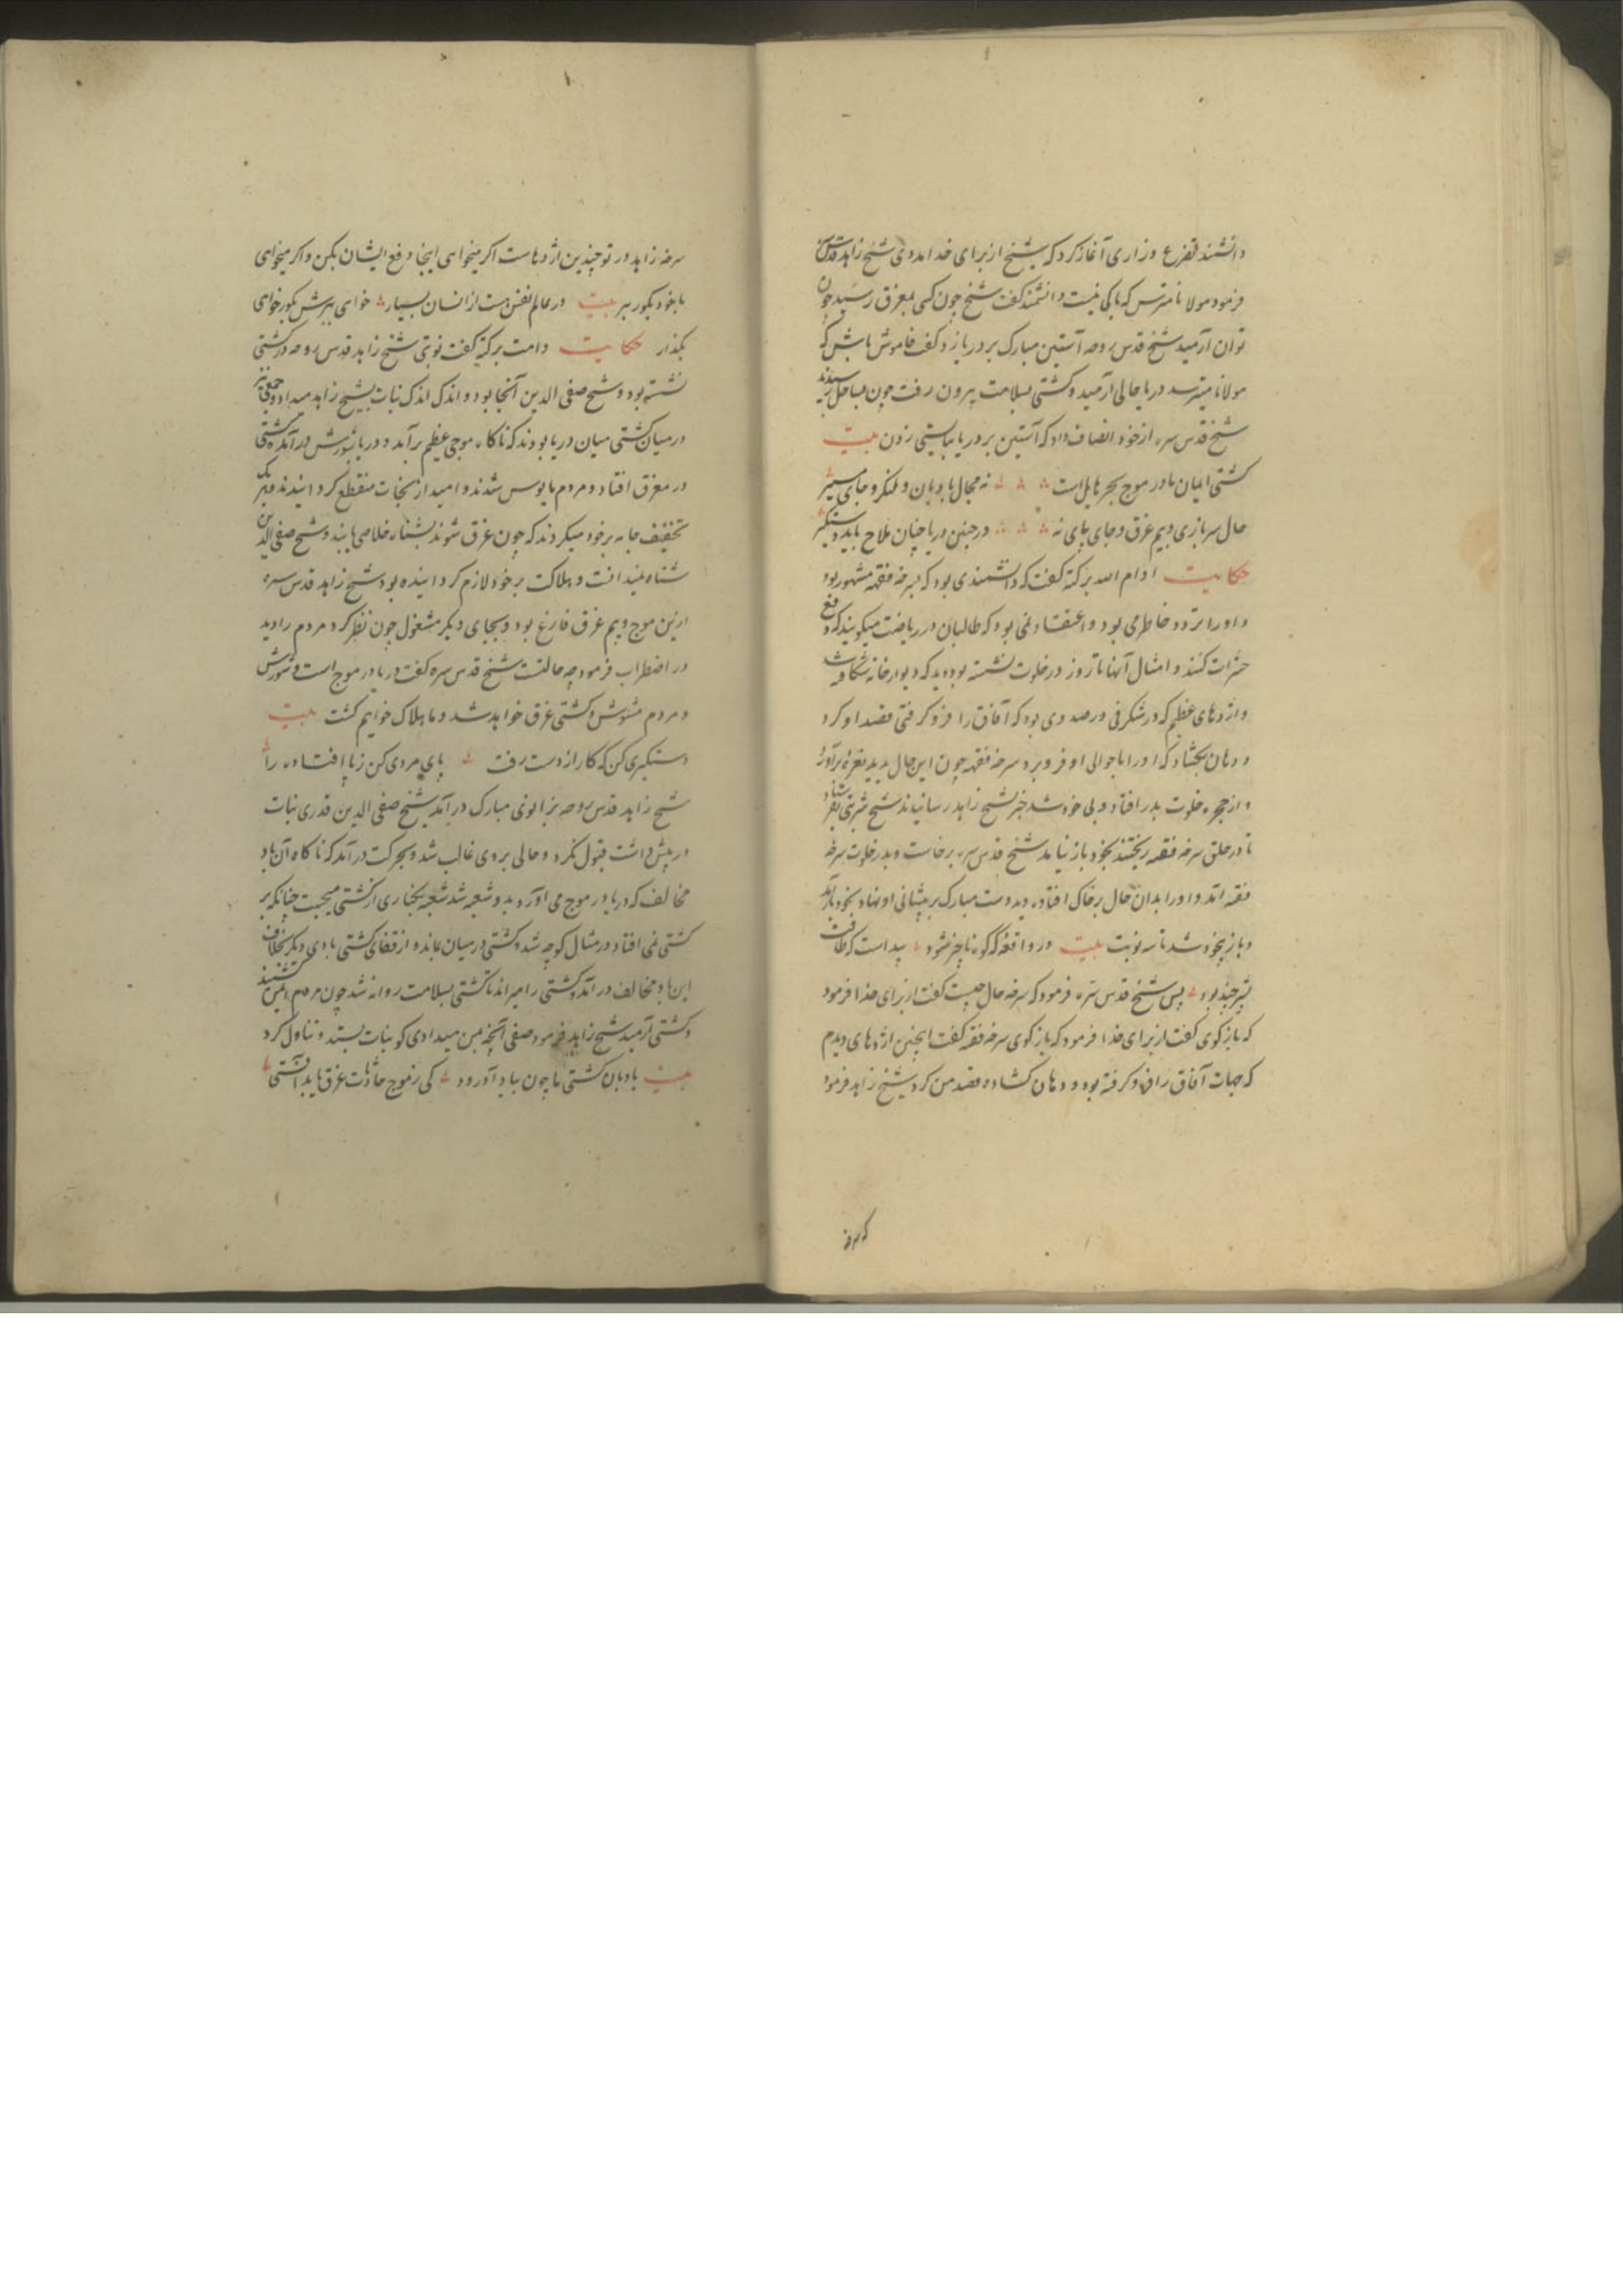 دانشمند تضرع و زاری آغاز کرد که شیخ از برای خدا مددی شیخ زاهد قدس سره
فرمود مولانا مترس که باکی نیست دانشمند گفت شیخ چون کسی بمغرق رسید چون
توان آرمید شیخ قدس روحه آستین مبارک بر دریا زد گفت خاموش باش که
مولانا میترسد دریا حالی آرمید و کشتی بسلامت بیرون رفت چون بساحل رسیدند
شیخ قدس سره از خود انصاف داد که آستین بر دریا نبایستی زدن بیت
کشتی ایمان ما در موج بحر هایل است نه مجال بادبان و لنگر و جای مسیر
حال سربازی و بیم غرق و جای پای نه در چنین دریا چنان ملاح باید دستگیر
حکایت ادام الله برکته گفت که دانشمندی بود که بسرخه فقیه مشهور بود
و او را تردد خاطر می بود و اعتقاد نمی بود که طالبان در ریاضت میگویند که دفع
حشرات کنند و امثال آنها تا روز در خلوت نشسته بود دید که دیوار خانه شکافته شد
و اژدهای عظیم که در شکرفی در صددی بود که آفاق را فرو گرفتی قصد او کرد
و دهان بگشاد که او را با حوالی او فرو برد سرخه فقیه چون این حال بدید نعره برآورد
و از حجره خلوت بدر افتاد و بی خود شد خبر بشیخ زاهد رسانیدند شیخ شربتی بفرستاد
تا در حلق سرخه فقیه ریختند بخود باز نیامد شیخ قدس سره برخاست و بدر خلوت سرخه
فقیه آمد و او را بدان حال بر خاک افتاده دید دست مبارک بر پیشانی او نهاد بخود باز آمد
و باز بیخود شد تا سه نوبت بیت در واقعه که کوه ناچیز شود پیداست که طاقت
بشر چند بود پس شیخ قدس سره فرمود که سرخه حال چیست گفت از برای خدا فرمود
که بازگوی گفت از برای خدا فرمود که بازگوی سرخه فقیه گفت اینچنین اژدهای دیدم
که جهات آفاق را فرو گرفته بود و دهان گشاده قصد من کرد شیخ زاهد فرمود
که سرخه
سرخه زاهد در تو چندین اژدهاست اگر میخواهی اینجا دفع ایشان بکن و اگر میخواهی
با خود بگور بر بیت در عالم نفس هست از انسان بسیار خواهی ببرش بگور خواهی
بگذار حکایت دامت برکته گفت نوبتی شیخ زاهد قدس روحه در کشتی
نشسته بود و شیخ صفی الدین آنجا بود و اندک اندک نبات بشیخ زاهد میداد و جمعی
در میان کشتی میان دریا بودند که ناگاه موجی عظیم برآمد و دریا بشورش درآمد و کشتی
در مغرق افتاد و مردم مایوس شدند و امید از نجات منقطع گردانیدند و هر یک
تخفیف جامه بر خود میکردند که چون غرق شوند بشناه خلاصی یابند و شیخ صفی الدین
شناه نمیدانست و هلاکت بر خود لازم گردانیده بود شیخ زاهد قدس سره
ازین موج و بیم غرق فارغ بود و بجای دیگر مشغول چون نظر کرد مردم را دید
در اضطراب فرمود چه حالتست شیخ قدس سره گفت دریا در موج است و شورش
و مردم مشوش و کشتی غرق خواهد شد و ما هلاک خواهیم گشت بیت
دستگیری کن که کار از دست رفت پای مردی کن ز پا افتاده را
شیخ زاهد قدس روحه بزانوی مبارک درآمد شیخ صفی الدین قدری نبات
در پیش داشت قبول نکرد و حالی بر وی غالب شد و بحرکت درآمد که ناگاه آن باد
مخالف که دریا در موج می آورد بدو شعبه شد شعبه بکناری از کشتی میجست چنانکه بر
کشتی نمی افتاد در مثال کوچه شد و کشتی در میان بماند و از قفای کشتی بادی دیگر بخلاف
این باد مخالف درآمد و کشتی را میراند تا کشتی بسلامت روانه شد چون مردم ایمن گشتند
و کشتی آرمید شیخ زاهد فرمود صفی آنچه بمن میدادی کو نبات بستد و تناول کرد
بیت بادبان کشتی ما چون بباد آورد کی ز موج حادثات غرق یابد